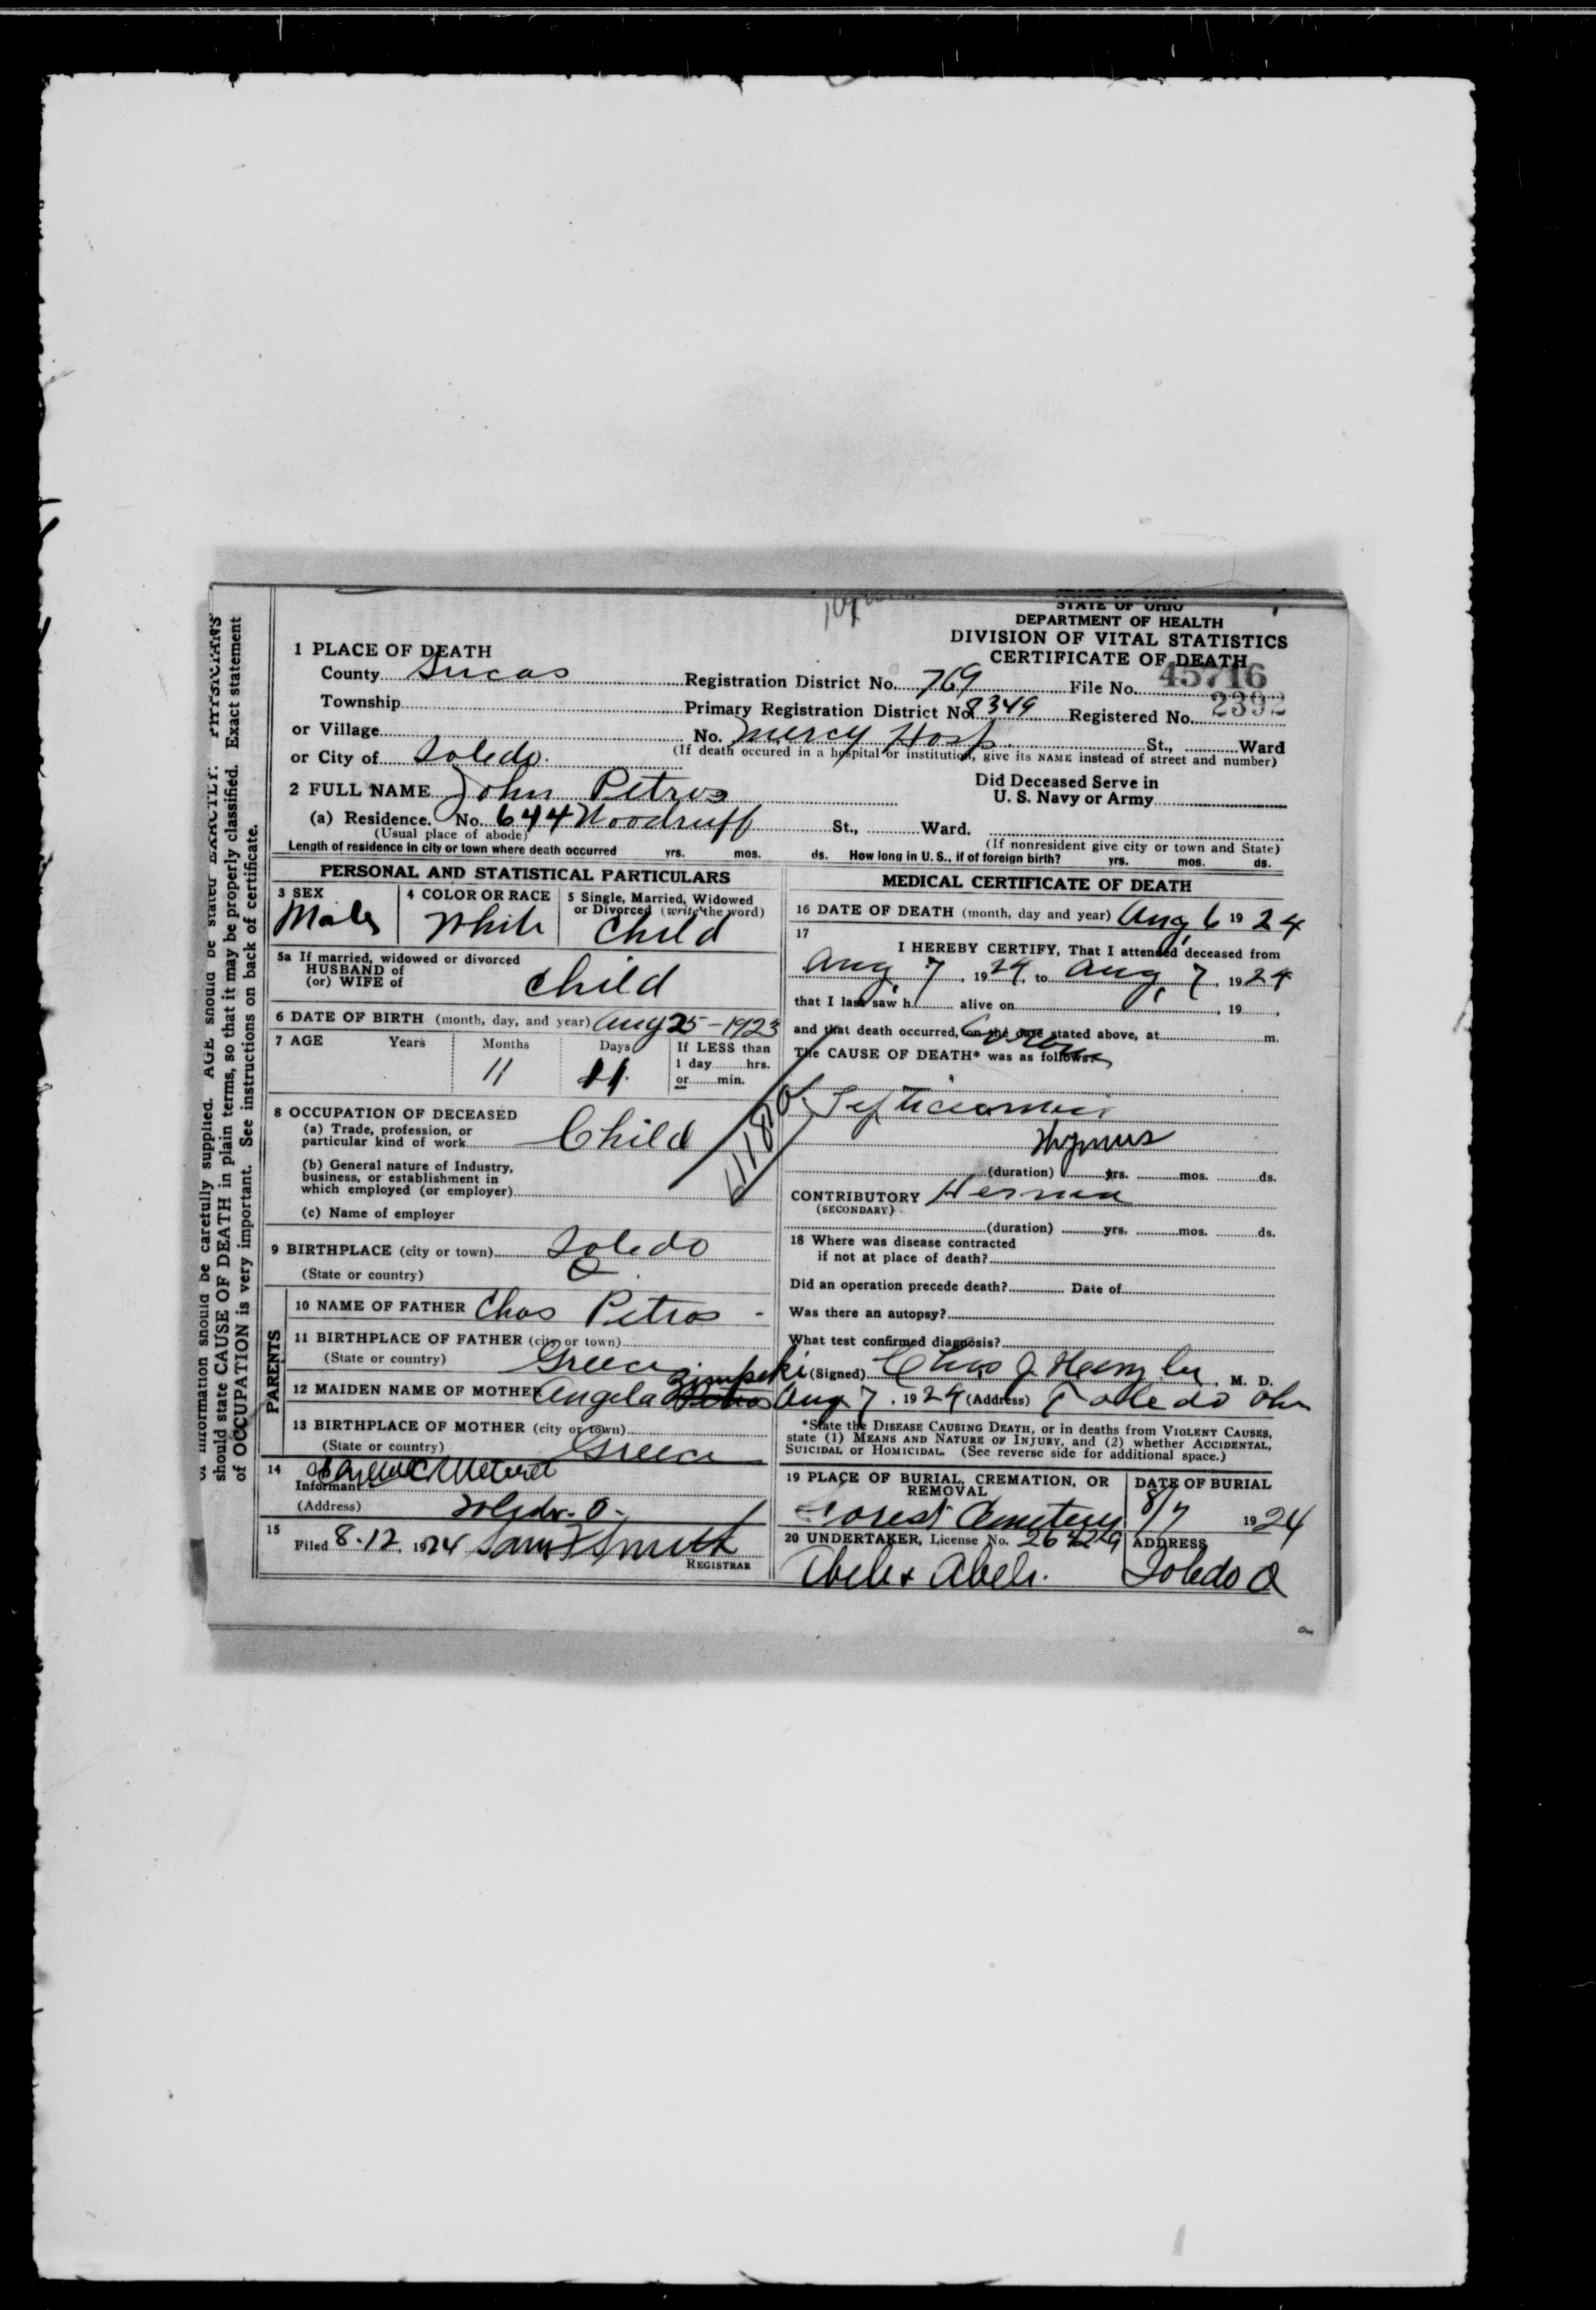 STATE OF OHIO
DEPARTMENT OF HEALTH
DIVISION OF VITAL STATISTICS
CERTIFICATE OF DEATH
1 PLACE OF DEATH
County Lucas Registration District No. 769 File No. 45716
Township Primary Registration District No. 8349 Registered No. 2392
or Village No. Mercy Hosp. St., Ward
or City of Toledo. (If death occured in a hospital or institution, give its NAME instead of street and number)
2 FULL NAME John Petros Did Deceased Serve in
U. S. Navy or Army
(a) Residence. No. 644 Woodruff St., Ward.
(Usual place of abode) (If nonresident give city or town and State)
Length of residence in city or town where death occurred yrs. mos. ds. How long in U. S., if of foreign birth? yrs. mos. ds.
PERSONAL AND STATISTICAL PARTICULARS
3 SEX
Male
4 COLOR OR RACE
White
5 Single, Married, Widowed
or Divorced (write the word)
Child
5a If married, widowed or divorced
HUSBAND of
(or) WIFE of
Child
6 DATE OF BIRTH (month, day, and year) Aug 25-1923
7 AGE Years Months Days If LESS than
1 day hrs.
or min.
11 11
8 OCCUPATION OF DECEASED
(a) Trade, profession, or
particular kind of work Child
(b) General nature of Industry,
business, or establishment in
which employed (or employer)
(c) Name of employer
9 BIRTHPLACE (city or town) Toledo
(State or country) O.
PARENTS
10 NAME OF FATHER Chas Petros -
11 BIRTHPLACE OF FATHER (city or town)
(State or country) Greece
12 MAIDEN NAME OF MOTHER Angela Petros
13 BIRTHPLACE OF MOTHER (city or town)
(State or country) Greece
14
Informant
(Address) Toledo. O-
15
Filed 8-12, 1924 Sam Smith
REGISTRAR
MEDICAL CERTIFICATE OF DEATH
16 DATE OF DEATH (month, day and year) Aug 6 1924
17
I HEREBY CERTIFY, That I attended deceased from
Aug, 7, 1924, to Aug, 7, 1924
that I last saw h alive on , 19 ,
and that death occurred, on the date stated above, at m.
The CAUSE OF DEATH* was as follows:
Thymus
(duration) yrs. mos. ds.
CONTRIBUTORY
(SECONDARY)
(duration) yrs. mos. ds.
18 Where was disease contracted
if not at place of death?
Did an operation precede death? Date of
Was there an autopsy?
What test confirmed diagnosis?
(Signed) Chas J. , M. D.
Aug 7, 1924 (Address) Toledo Ohio
*State the DISEASE CAUSING DEATH, or in deaths from VIOLENT CAUSES,
state (1) MEANS AND NATURE OF INJURY, and (2) whether ACCIDENTAL,
SUICIDAL or HOMICIDAL. (See reverse side for additional space.)
19 PLACE OF BURIAL, CREMATION, OR
REMOVAL
Forest Cemetery
DATE OF BURIAL
8/7 1924
20 UNDERTAKER, License No.
Abele & Abele.
ADDRESS
Toledo O
of information should be carefully supplied. AGE should be stated EXACTLY. PHYSICIANS
should state CAUSE OF DEATH in plain terms, so that it may be properly classified. Exact statement
of OCCUPATION is very important. See instructions on back of certificate.